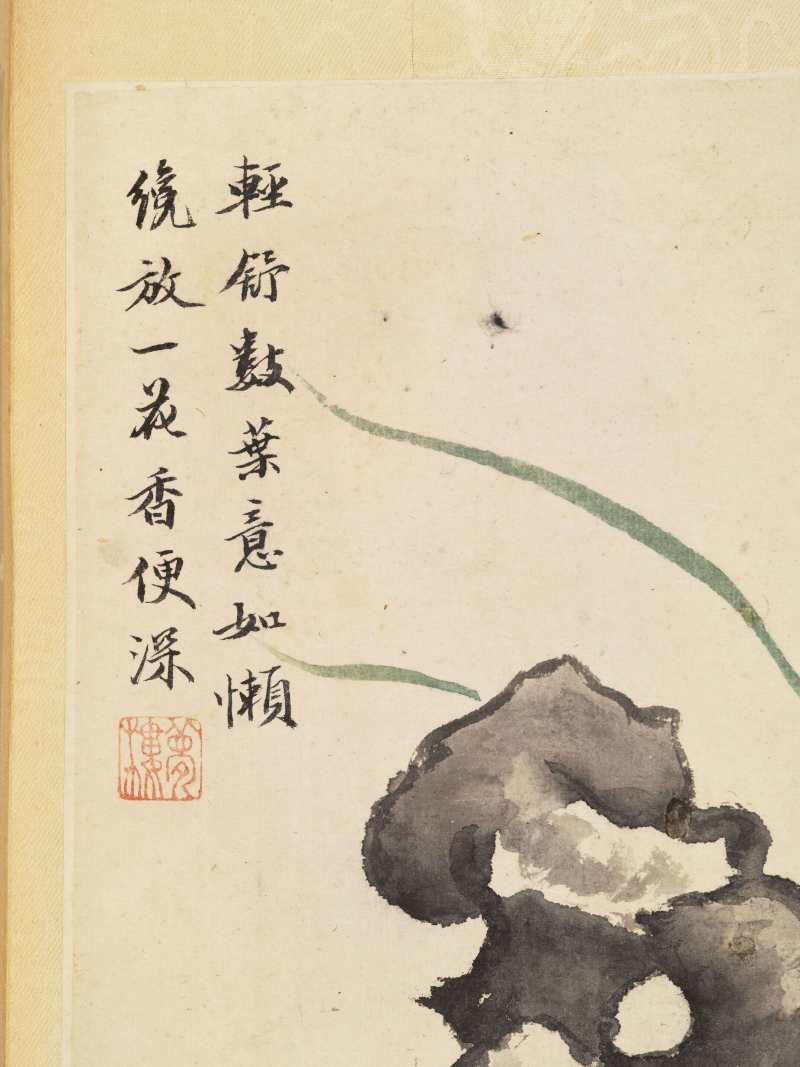 輕舒數葉意如懶
纔放一花香便深
夢樓